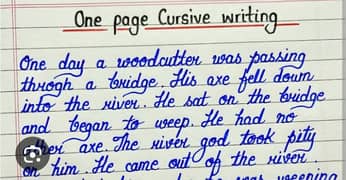 One page Cursive writing
One day a woodcutter was passing
throgh a bridge. His axe fell down
into the river. He sat on the bridge
and began to weep. He had no
axe. The river god took pity
on him. He came out of the river.
was weeping